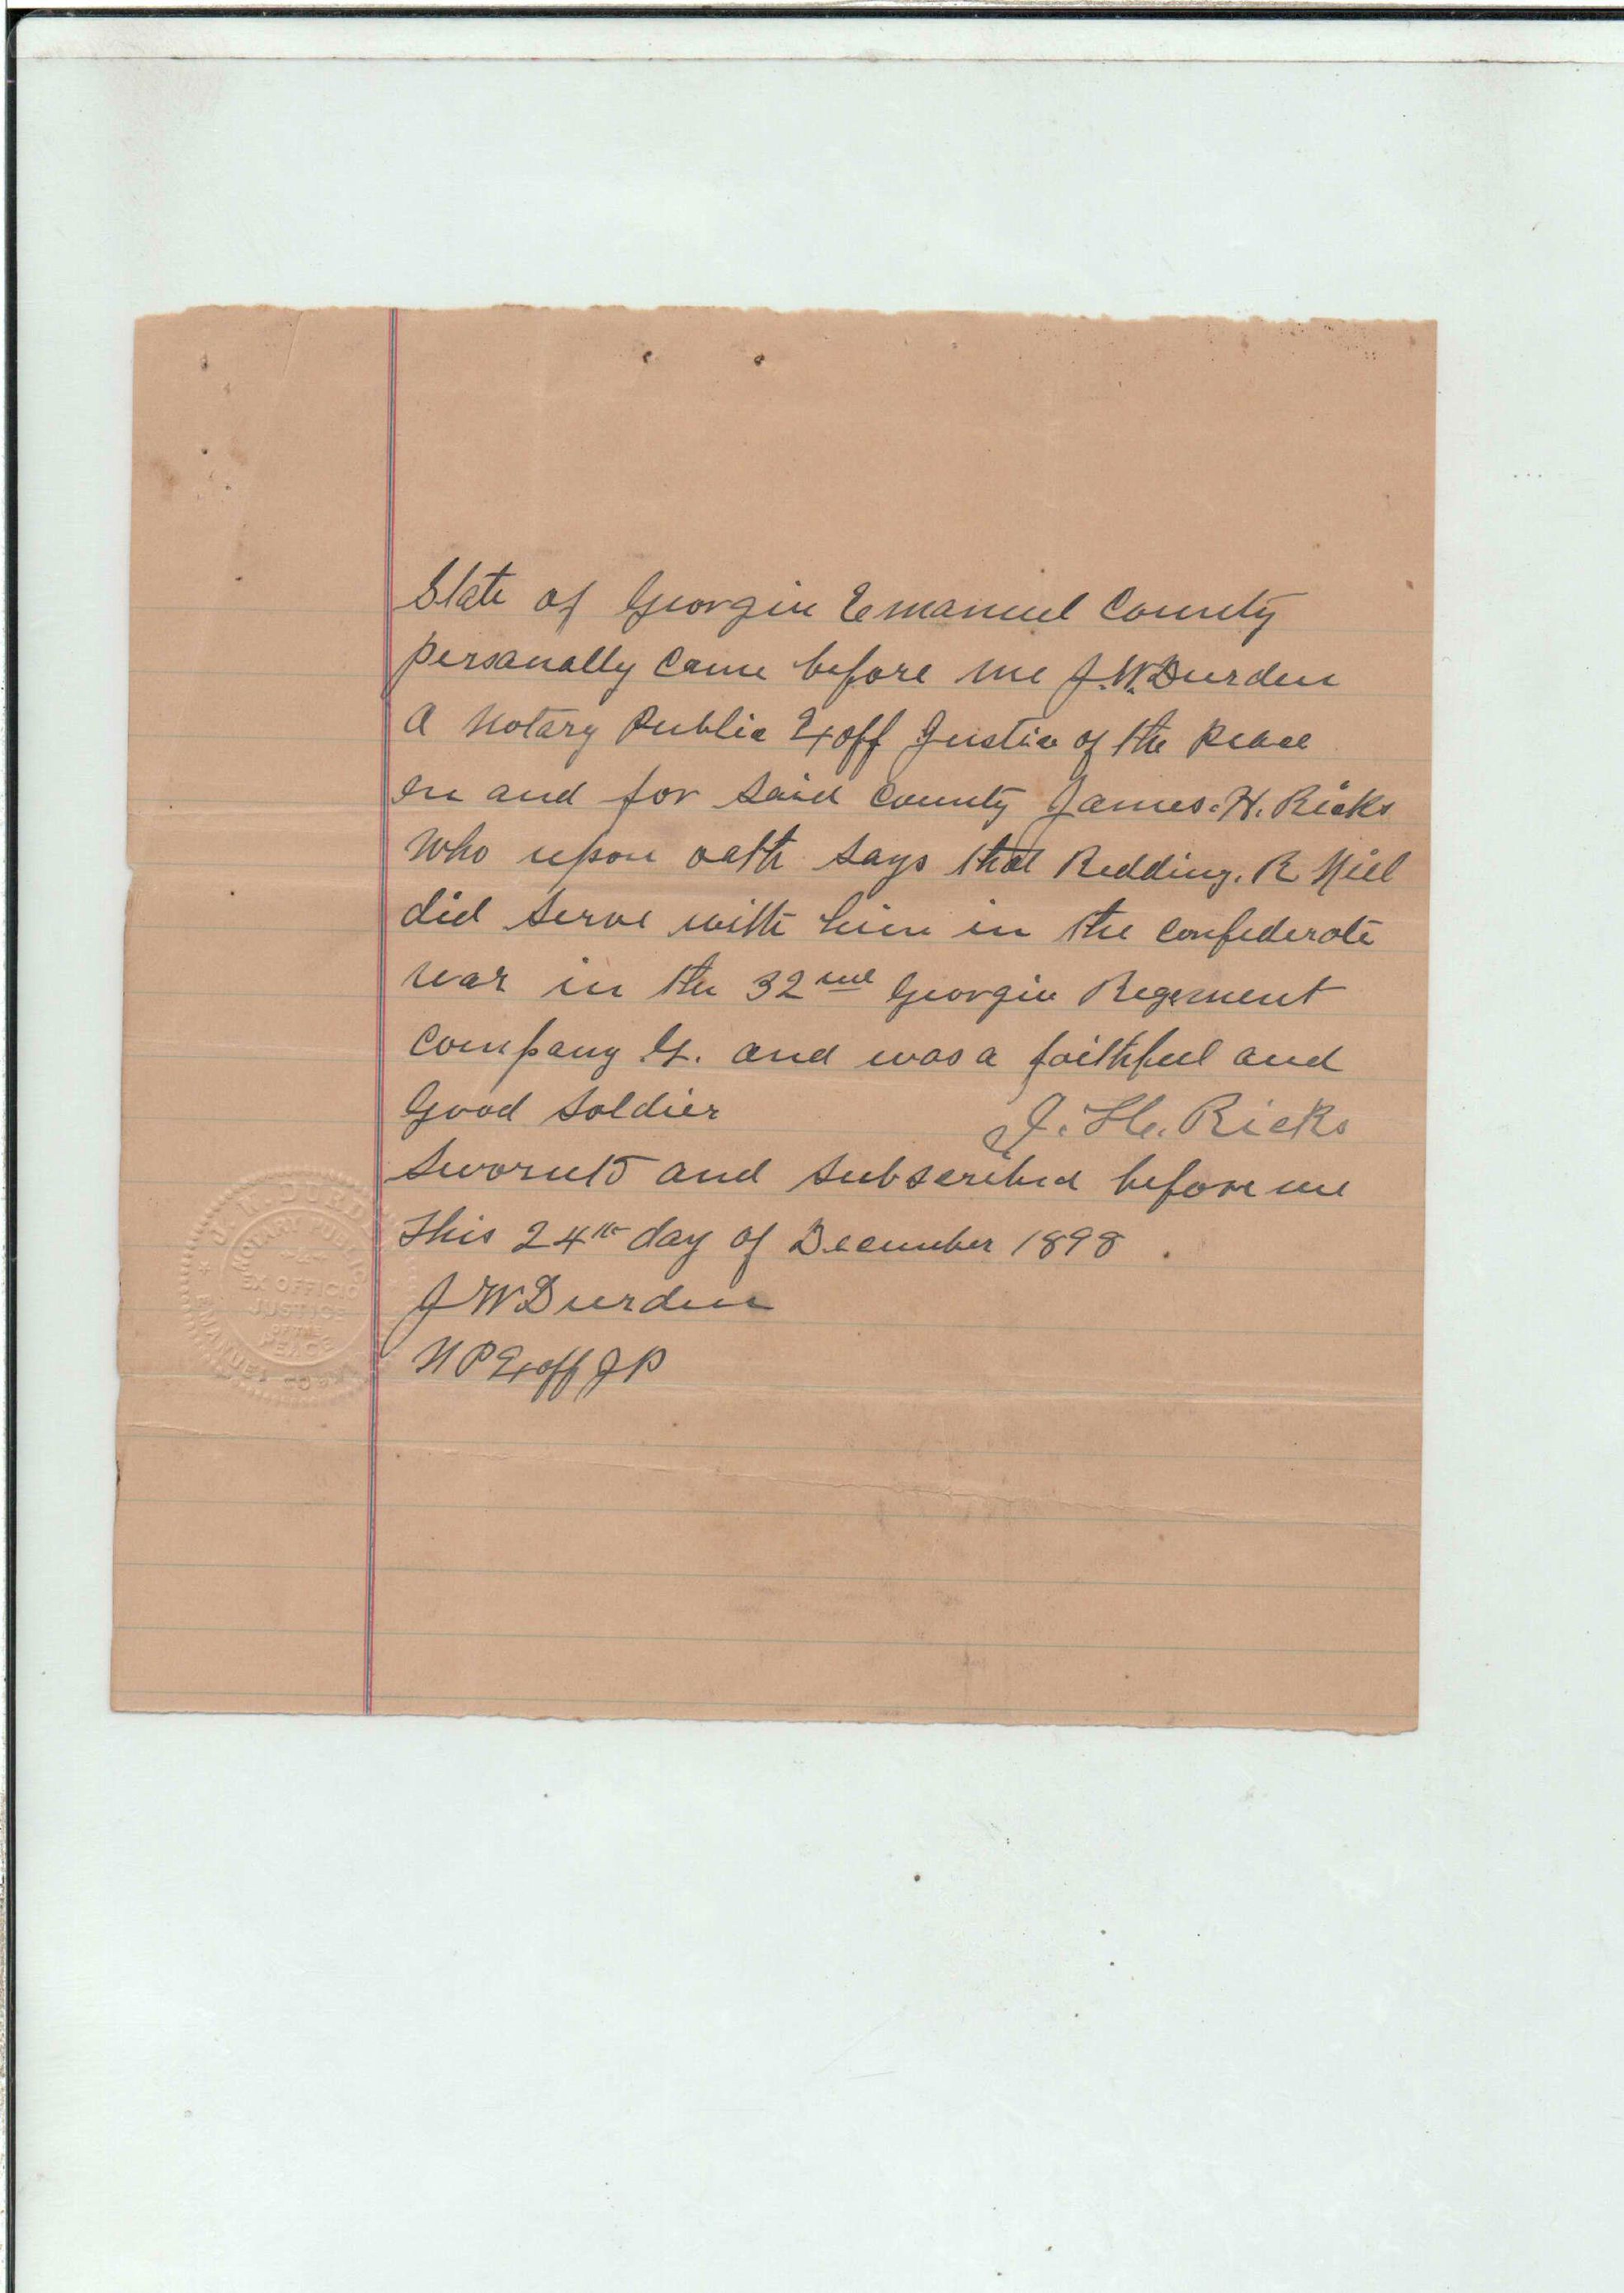 State of Georgia Emanuel County
personally came before me J.W. Durden
A Notary Public Exoff Justice of the Peace
in and for said County James. H. Ricks
Who upon oath says that Redding. R
did serve with him in the confederate
war in the 32nd Georgia Regement
Company G. and was a faithful and
Good soldier
J. H. Ricks
Sworn to and subscribed before me
this 24th day of December 1898.
J W Durden
N P Exoff J P
J. W. DURDEN
NOTARY PUBLIC
EX OFFICIO
JUSTICE
OF THE
PEACE
EMANUEL CO